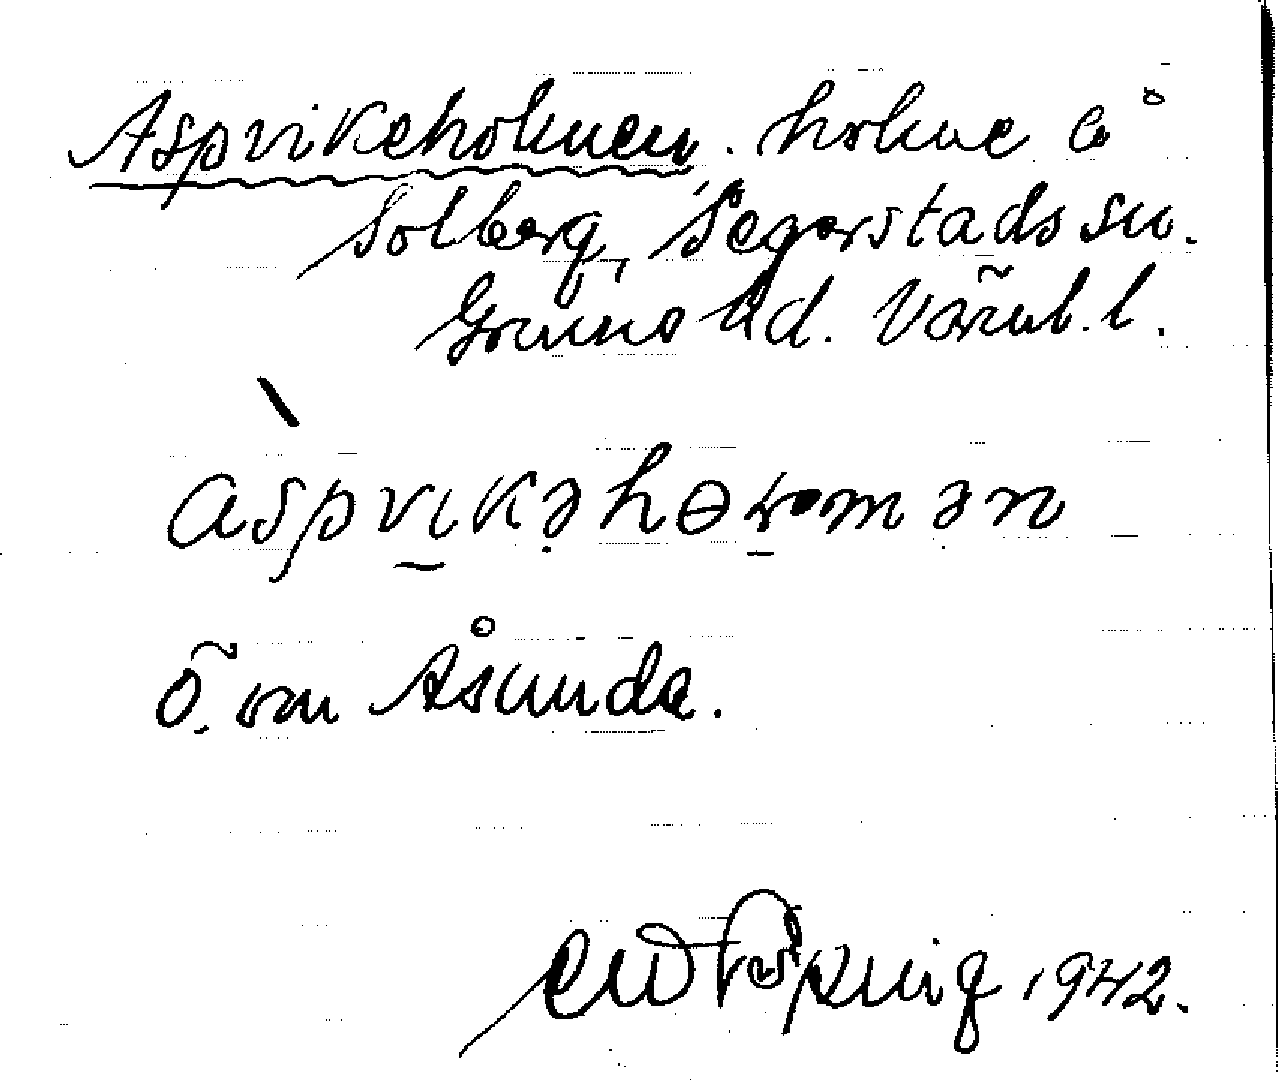 Aspvikeholmen. holme å
Solberg, Segerstads sn.
Grums hd. Värml. l.
aspvikəhɵɽmən
Ö. om Åsunda.
1942.